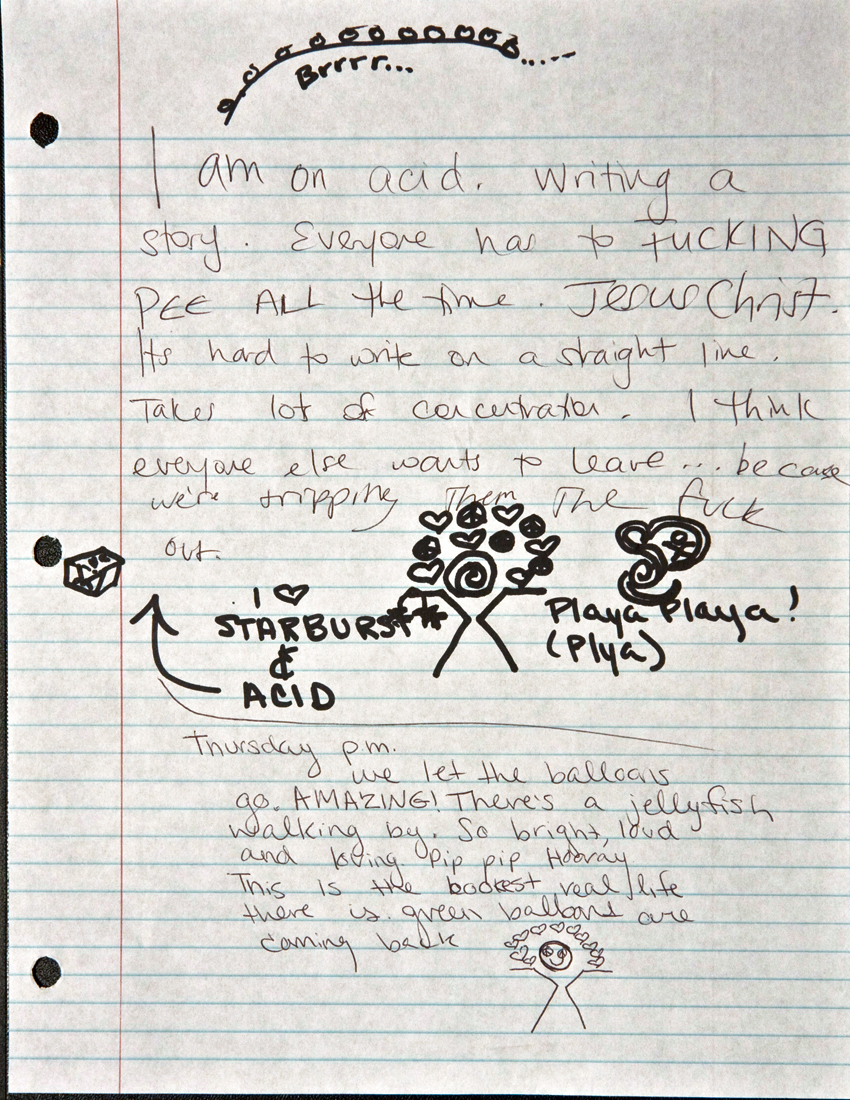 Brrrr...
I am on acid. Writing a
story. Everyone has to FUCKING
PEE ALL the time. Jesus Christ.
Its hard to write on a straight line.
Takes lots of concentration. I think
everyone else wants to leave... because
we're tripping them The fuck
out.
I ♡
STARBURST
&
ACID
Playa Playa!
(Plya)
Thursday p.m.
we let the balloons
go. AMAZING! There's a jellyfish
walking by. So bright, loud
and loving Pip pip Hooray
This is the real life
there is green balloons are
coming back